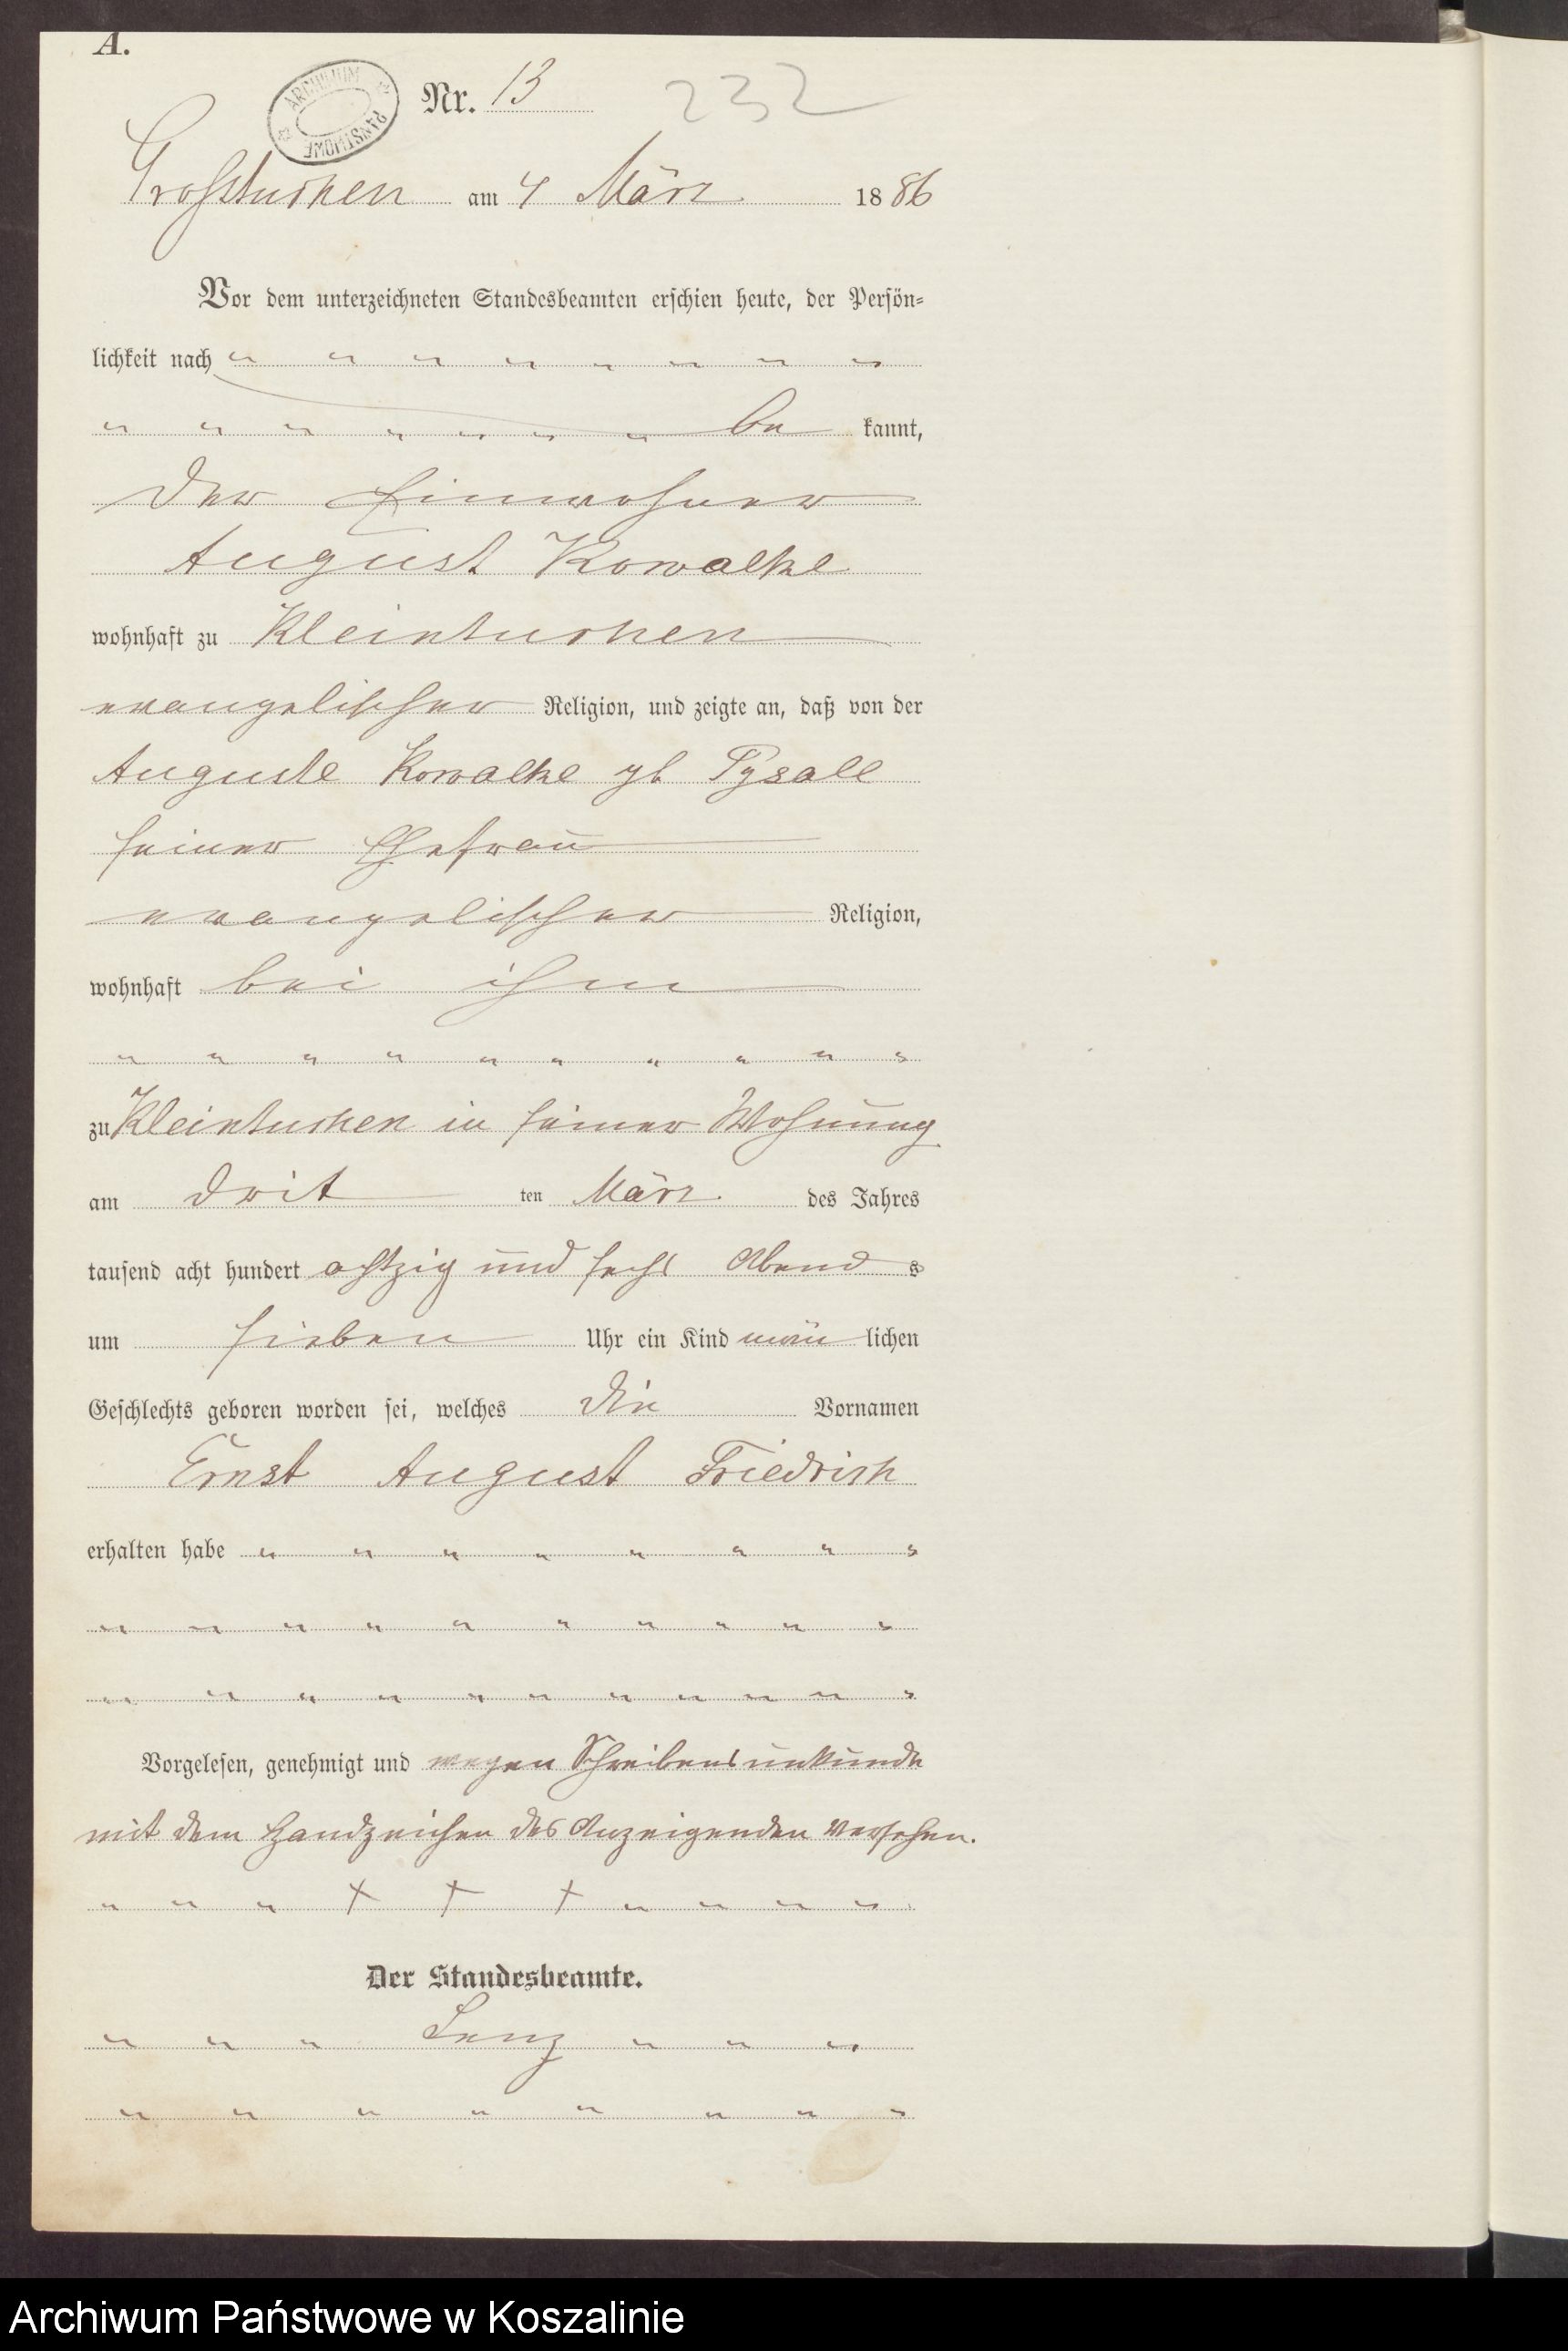 A.
ARCHIWUM PAŃSTWOWE
Nr. 13 232
Grosstuchen am 4 März 1886
Vor dem unterzeichneten Standesbeamten erschien heute, der Persön=
lichkeit nach " " " " " " " "
" " " " " " " be kannt,
der Einwohner
August Kowalke
wohnhaft zu Kleintuchen
evangelischer Religion, und zeigte an, daß von der
Auguste Kowalke gb Pysall
seiner Ehefrau
evangelischer Religion,
wohnhaft bei ihm
" " " " " " " " " "
zu Kleintuchen in seiner Wohnung
am drit ten März des Jahres
tausend acht hundert achtzig und sechs Abend s
um sieben Uhr ein Kind män lichen
Geschlechts geboren worden sei, welches die Vornamen
Ernst August Friedrich
erhalten habe " " " " " " " "
" " " " " " " " " "
" " " " " " " " " " "
Vorgelesen, genehmigt und wegen Schreibensunkunde
mit dem Handzeichen des Anzeigenden versehen.
" " " + + + " " " "
Der Standesbeamte.
" " " Lenz " " "
" " " " " " " "
Archiwum Państwowe w Koszalinie